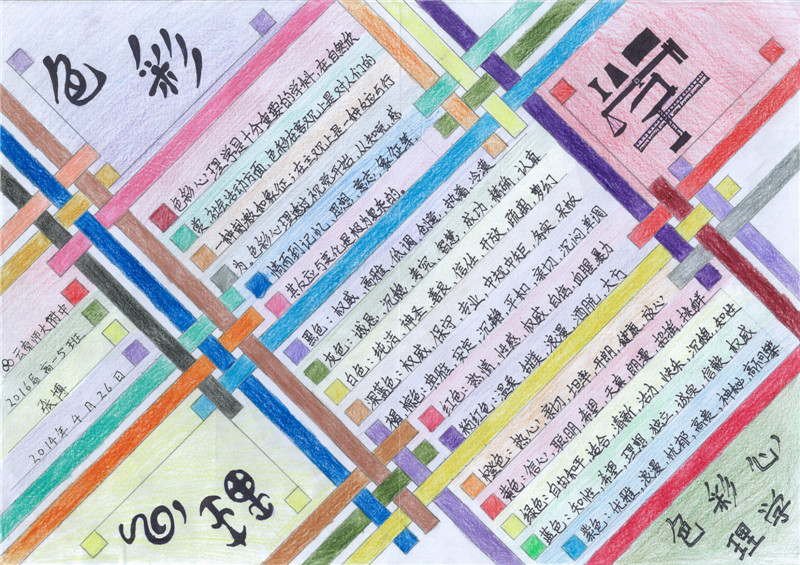 色彩
心理
学
色彩心理学是十分重要的学科,在自然欣
赏、社会活动方面,色彩在客观上是对人们的
一种刺激和象征;在主观上是一种反应与行
为。色彩心理透过视觉开始,从知觉、感
情而到记忆、思想、意志、象征等,
其反应与变化是极为复杂的。
黑色:权威、高雅、低调、创意、执着、冷漠
灰色:诚恳、沉稳、考究、智慧、成功、精确、认真
白色:纯洁、神圣、善良、信任、开放、朦胧、梦幻
深蓝色:权威、保守、专业、中规中矩、务实、呆板
褐棕色:典雅、安定、沉静、平和、亲切、沉闷、单调
红色:热情、性感、权威、自信、血腥、暴力
粉红色:温柔、甜美、浪漫、洒脱、大方
橙色:热心、亲切、坦率、开朗、健康、
黄色:信心、聪明、希望、天真、明亮、
绿色:自由和平、舒适、清新、活力、快乐、
蓝色:知性、希望、理想、独立、淡定、信赖、权威
紫色:优雅、浪漫、忧郁、高贵、神秘、高不可攀
云南师大附中
2016届高一5班
张博
2014年4月26日
色彩心
理学